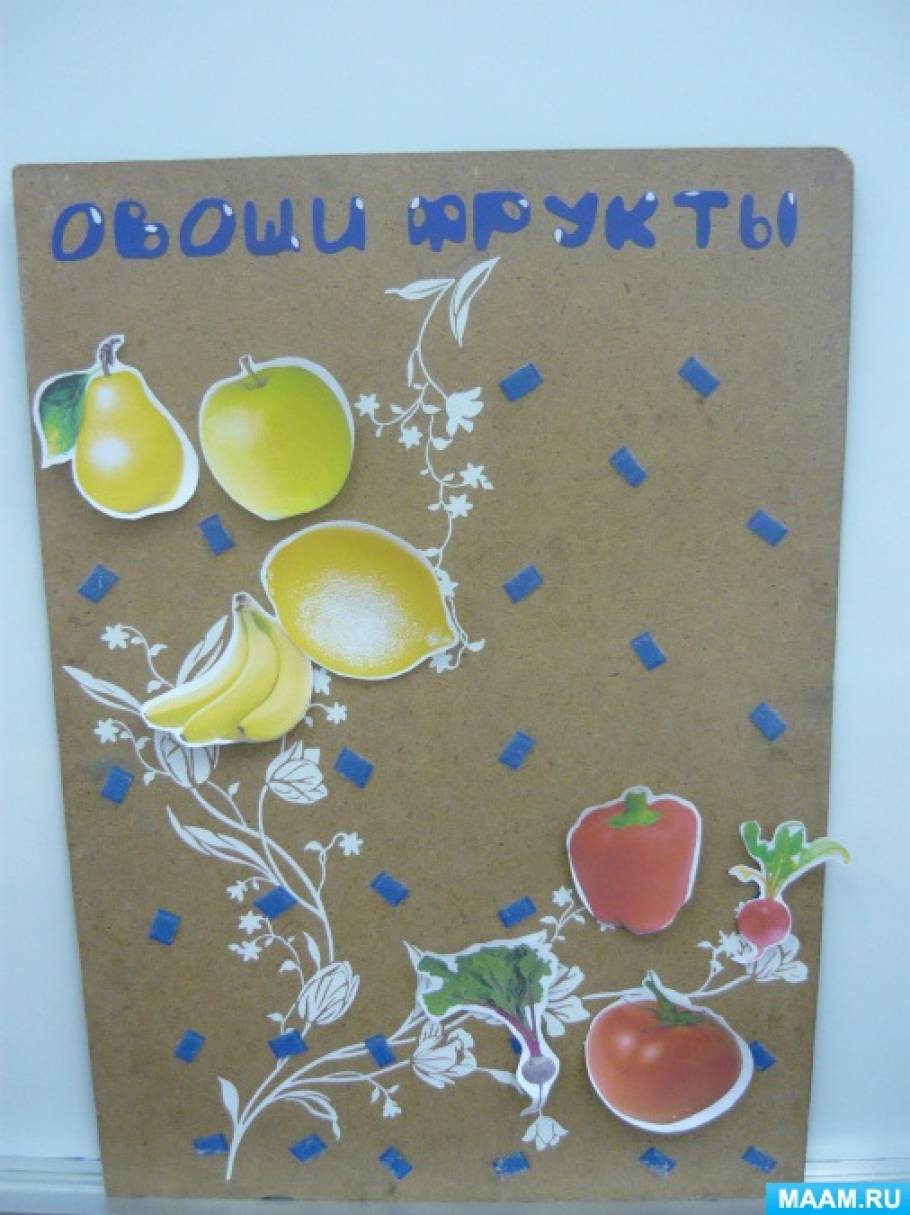 ОВОЩИ ФРУКТЫ
MAAM.RU